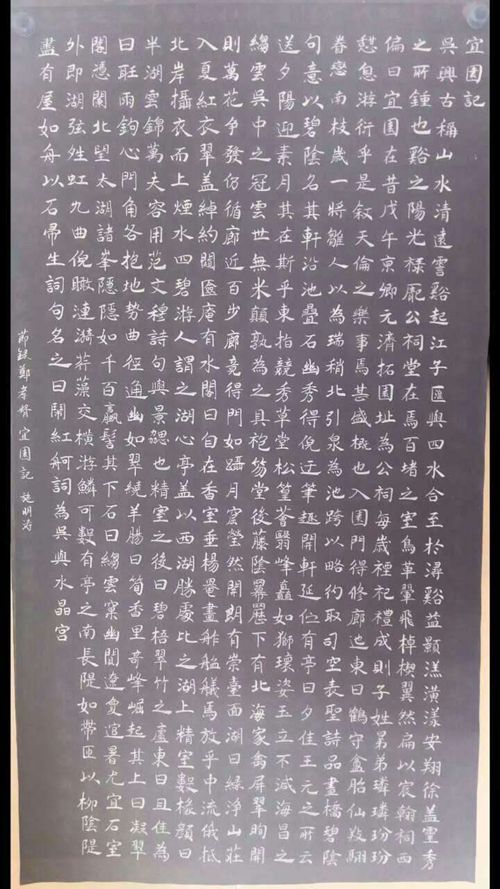 宜園記
吳興古稱山水清遠霅谿起江子匯與四水合至於潯谿益顥溔潢漾安翔徐蓋靈秀
之所鍾也谿之陽光祿龐公祠堂在焉百堵之室鳥革翬飛棹楔翼然扁以宸翰祠西
偏曰宜園在昔戊午京卿元濟拓園址為公祠每歲禋祀禮成則子姓羣弟璘璘玢玢
憇息游衍乎是叙天倫之樂事焉甚盛概也入園門得修廊迤東曰鶴守盦胎仙
眷戀南枝歲一將雛人以為瑞稍北引泉為池跨以略彴取司空表聖詩品畫橋碧陰
句意以碧陰名其軒沿池疊石幽秀得倪迂筆趣開軒延佇有亭曰夕佳王元之所云
送夕陽迎素月其在斯乎東指競秀草堂松篁薈翳峰矗如獅瓌姿玉立不減海昌之
縐雲吳中之冠雲世無米顛孰為之具袍笏堂後藤陰羃䍥下有北海家禽屏翠昫開
則萬花爭發仿循廊近百步廊竟得門如躡月窟瑩然開朗有崇臺面湖曰綠淨山莊
入夏紅衣翠蓋綽約闤庵有水閣曰自在香室垂楊罨畫舴艋艤焉放乎中流俄抵
北岸攝衣而上煙水四碧游人謂之湖心亭蓋以西湖勝處比之湖上精室數椽顏曰
半湖雲錦萬夫容用范文穆詩句與景勰也精室之後曰碧梧翠竹之廬東曰且佳為
曰聽雨鉤心鬥角各抱地勢曲徑通幽如翠繞羊腸曰筍香里奇峰崛起其上曰凝翠
閣憑闌北望太湖諸峯隱隱如千百蠃髻其下石曰縐雲窠幽閒遼夐逭暑尤宜石室
外即湖強姓虹九曲俛瞰漣漪荇藻交橫游鱗可數有亭之南長隄如帶匝以柳陰隄
盡有屋如舟以石帚生詞句名之曰鬧紅舸詞為吳興水晶宮
節錄鄭孝胥宜園記 施明